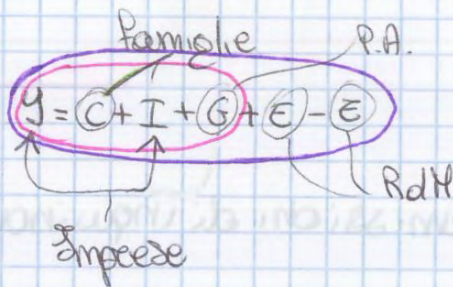 Famiglie P.A.
Y = C + I + G + E - E
RdM
Imprese